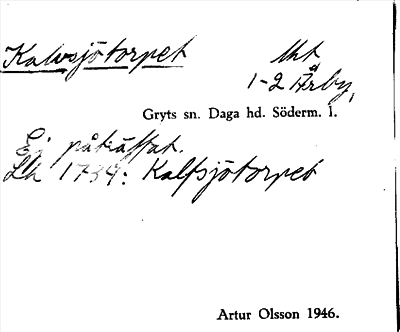 Kalvsjötorpet
Uht
1-2 Årby,
Gryts sn. Daga hd. Söderm. l.
Ej påträffat.
Lh 1734: Kalfsjötorpet
Artur Olsson 1946.